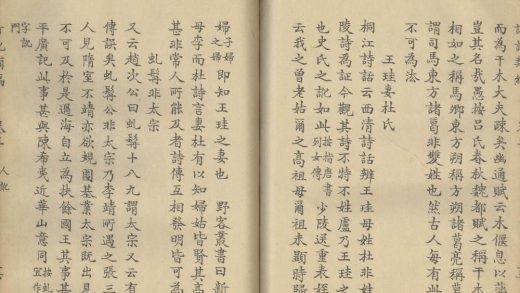 而為干木大夫疎矣幽通賦云木偃息以蕃
豈其名哉愚按呂氏春秋魏都賦之稱干
相如之稱馬卿東方朔稱方朔諸葛亮稱葛
謂司馬東方諸葛非雙姓也然古人每有此
不可為法
王珪妻杜氏
桐江詩話云西清詩話辨王珪母姓杜非姓
陵詩為証今觀其詩不特不姓盧乃王珪之
也史氏之訛如此按指唐書列女傳少陵送重表姪
云我之曾老姑爾之高祖母爾祖未顯時歸
婦子婦之婦即知王珪之妻也 野客叢書曰新
母李而杜詩言妻杜有以知婦姑皆賢其高
甚非常人所能及者詩傳互相發明皆可為
虬髯非太宗
又云趙次公曰虬髯十八九謂太宗又云有
傳誤矣虬髯公非太宗乃李靖所遇之張三
人見隋室不靖亦欲規圖基業太宗既出見
不可及於是過海自立為扶餘國王其事甚
平廣記此事甚與陳希夷近華山意同按虬宜作
字說
門